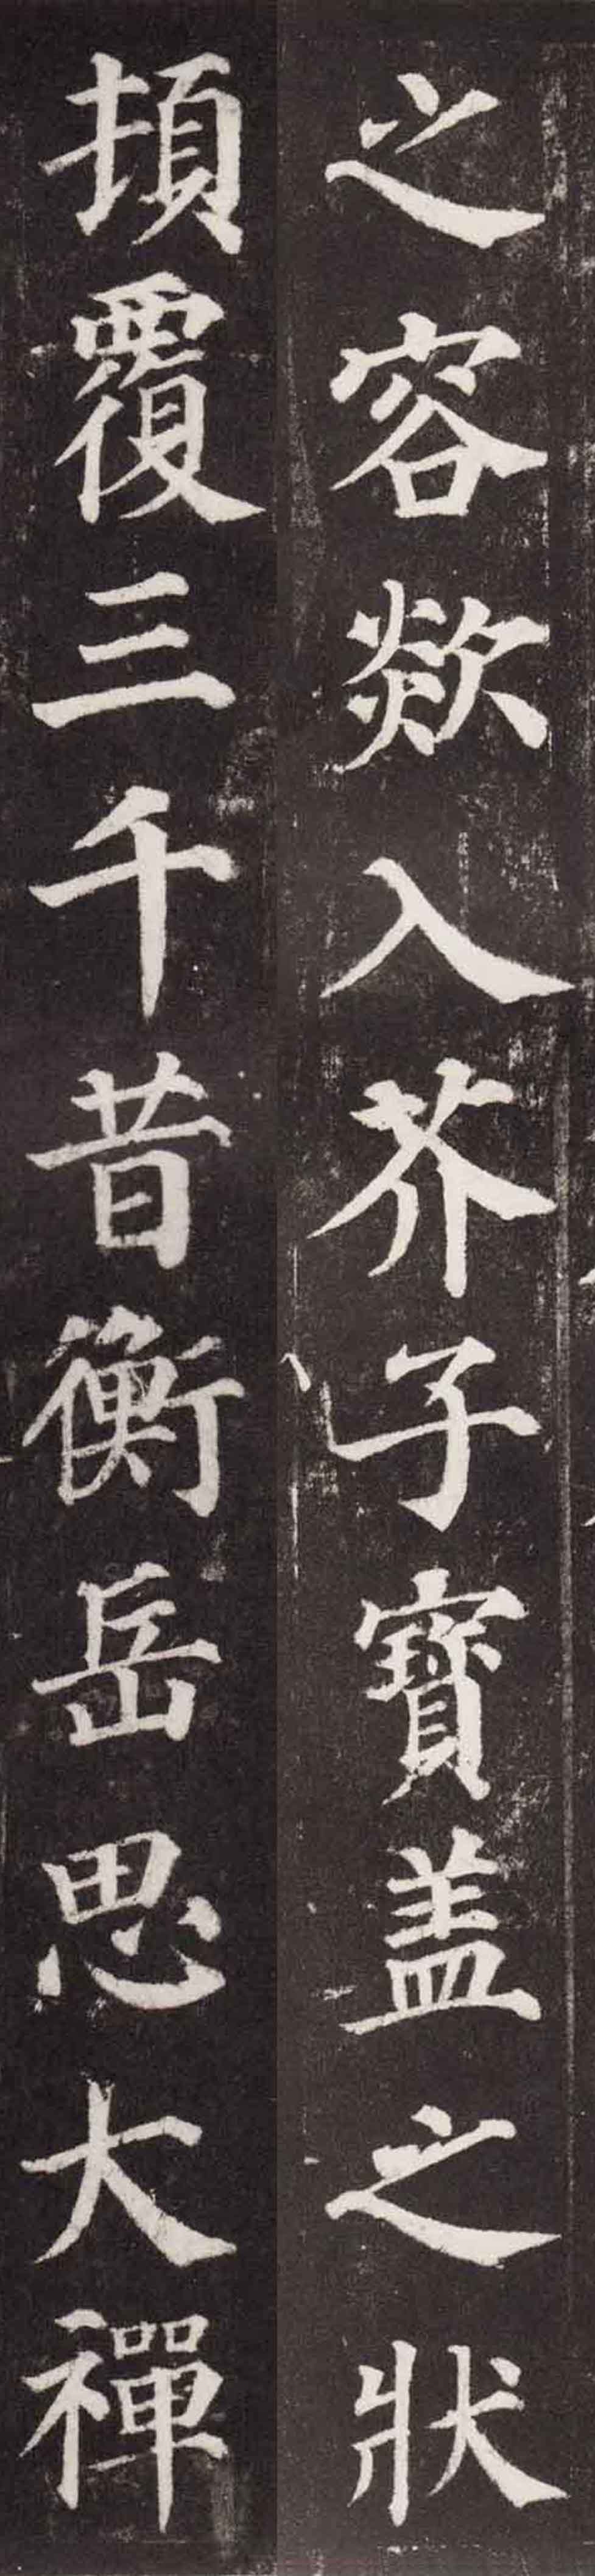 之容欻入芥子寶盖之狀
頓覆三千昔衡岳思大禪